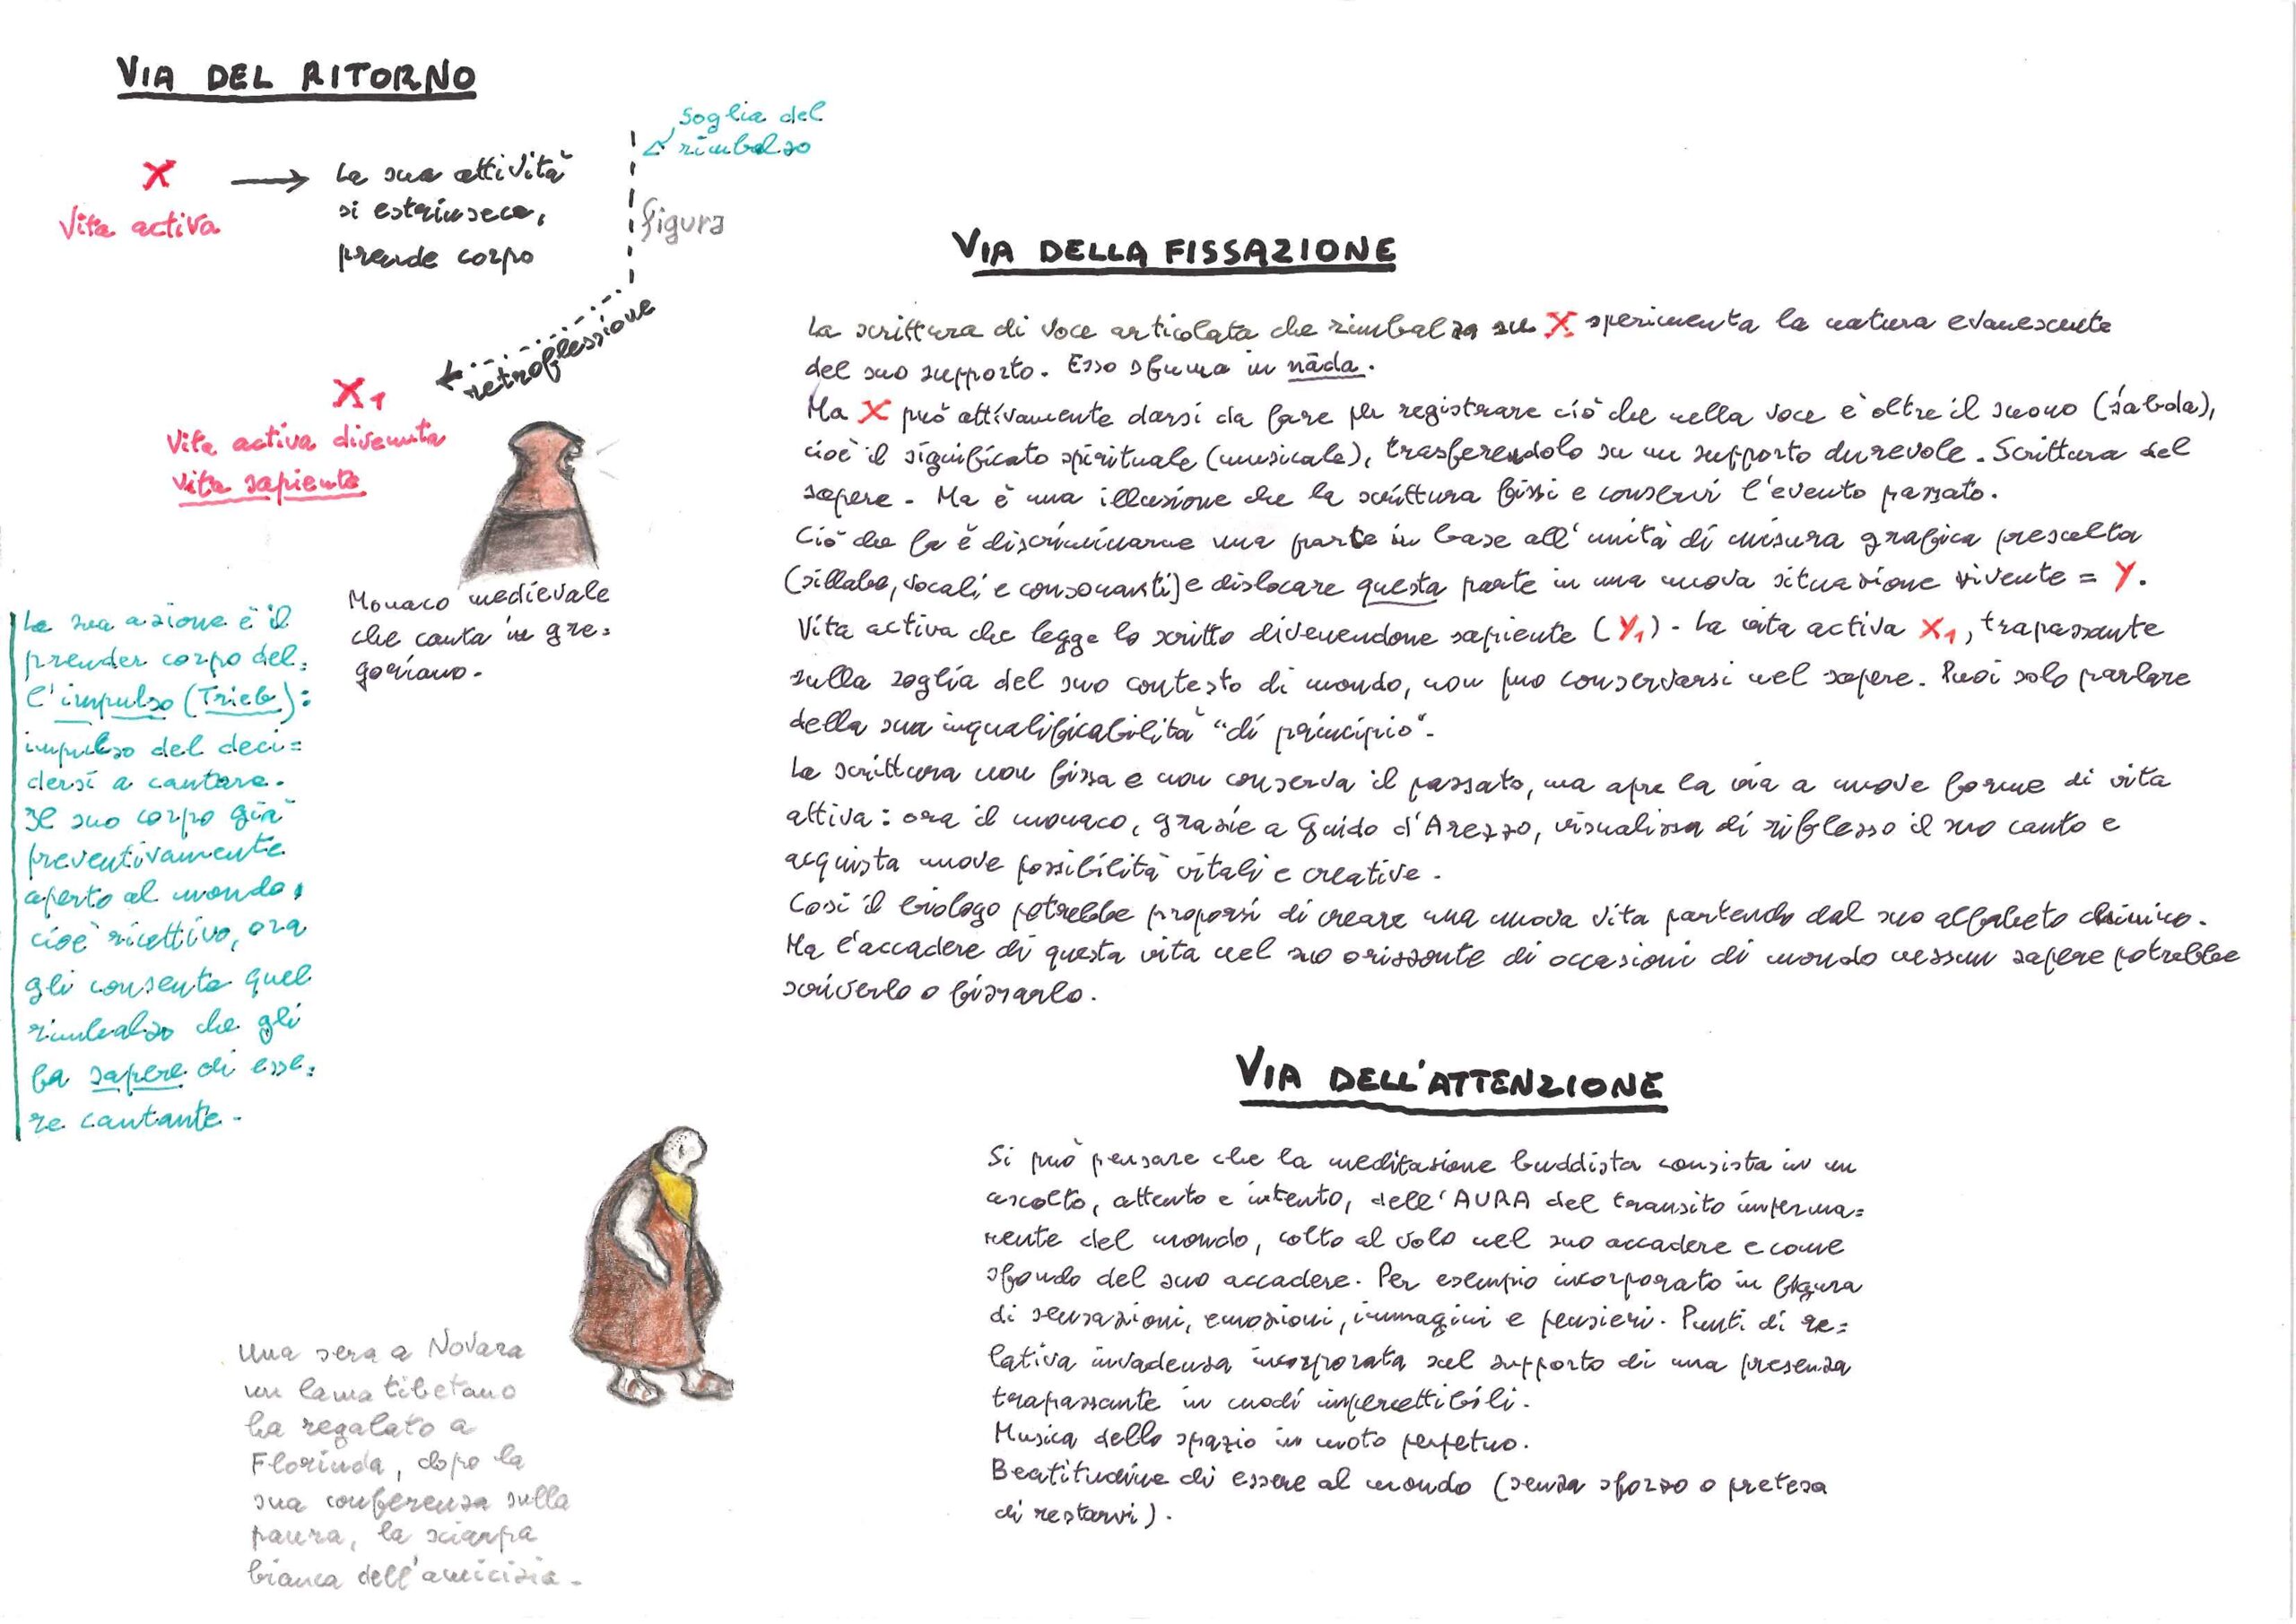 VIA DEL RITORNO
X
Vita activa
La sua attività
si estrinseca,
prende corpo
soglia del
rimbalzo
figura
retroflessione
X1
Vita activa divenuta
vita sapiente
Monaco medievale
che canta in gre=
goriano.
La sua azione è il
prender corpo del=
l'impulso (Trieb):
impulso del deci=
dersi a cantare.
Il suo corpo già
preventivamente
aperto al mondo,
cioè ricettivo, ora
gli consente quel
rimbalzo che gli
fa sapere di esse=
re cantante.
Una sera a Novara
un lama tibetano
ha regalato a
Florinda, dopo la
sua conferenza sulla
paura, la sciarpa
bianca dell'amicizia.
VIA DELLA FISSAZIONE
La scrittura di voce articolata che rimbalza su X sperimenta la natura evanescente
del suo supporto. Esso sfuma in nāda.
Ma X può attivamente darsi da fare per registrare ciò che nella voce è oltre il suono (śabda),
cioè il significato spirituale (musicale), trasferendolo su un supporto durevole. Scrittura del
sapere. Ma è una illusione che la scrittura fissi e conservi l'evento passato.
Ciò che fa è discriminarne una parte in base all'unità di misura grafica prescelta
(sillabe, vocali e consonanti) e dislocare questa parte in una nuova situazione vivente = Y.
Vita activa che legge lo scritto divenendone sapiente (Y1). La vita activa X1, trapassante
sulla soglia del suo contesto di mondo, non può conservarsi nel sapere. Puoi solo parlare
della sua inqualificabilità "di principio".
La scrittura non fissa e non conserva il passato, ma apre la via a nuove forme di vita
attiva: ora il monaco, grazie a Guido d'Arezzo, visualizza di riflesso il suo canto e
acquista nuove possibilità vitali e creative.
Così il biologo potrebbe proporsi di creare una nuova vita partendo dal suo alfabeto chimico.
Ma l'accadere di questa vita nel suo orizzonte di occasioni di mondo nessun sapere potrebbe
scriverlo o fissarlo.
VIA DELL'ATTENZIONE
Si può pensare che la meditazione buddista consista in un
ascolto, attento e intento, dell'AURA del transito imperma=
nente del mondo, colto al volo nel suo accadere e come
sfondo del suo accadere. Per esempio incorporato in figura
di sensazioni, emozioni, immagini e pensieri. Punti di re=
lativa invadenza incorporata sul supporto di una presenza
trapassante in modi impercettibili.
Musica dello spazio in moto perpetuo.
Beatitudine di essere al mondo (senza sforzo o pretesa
di restarvi).